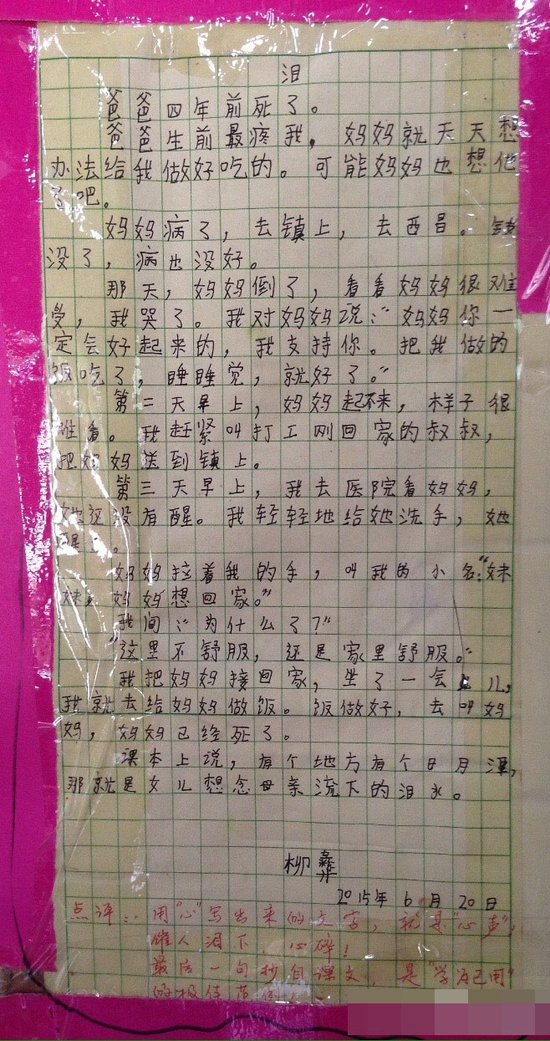 泪
爸爸四年前死了。
爸爸生前最疼我，妈妈就天天想
办法给我做好吃的。可能妈妈也想他
了吧。
妈妈病了，去镇上，去西昌。钱
没了，病也没好。
那天，妈妈倒了，看看妈妈很难
受，我哭了。我对妈妈说：“妈妈你一
定会好起来的，我支持你。把我做的
饭吃了，睡睡觉，就好了。”
第二天早上，妈妈起不来，样子很
难看。我赶紧叫打工刚回家的叔叔，
把妈妈送到镇上。
第三天早上，我去医院看妈妈，
她还没有醒。我轻轻地给她洗手，她
醒了。
妈妈拉着我的手，叫我的小名：“妹
妹，妈妈想回家。”
我问：“为什么了？”
“这里不舒服，还是家里舒服。”
我把妈妈接回家，坐了一会儿，
我就去给妈妈做饭。饭做好，去叫妈
妈，妈妈已经死了。
课本上说，有个地方有个日月潭，
那就是女儿想念母亲流下的泪水。
柳彝
2015年6月20日
点评：用“心”写出来的文字，就是“心声”，
催人泪下，心碎！
最后一句抄自课文，是“学为己用”
的极佳范例